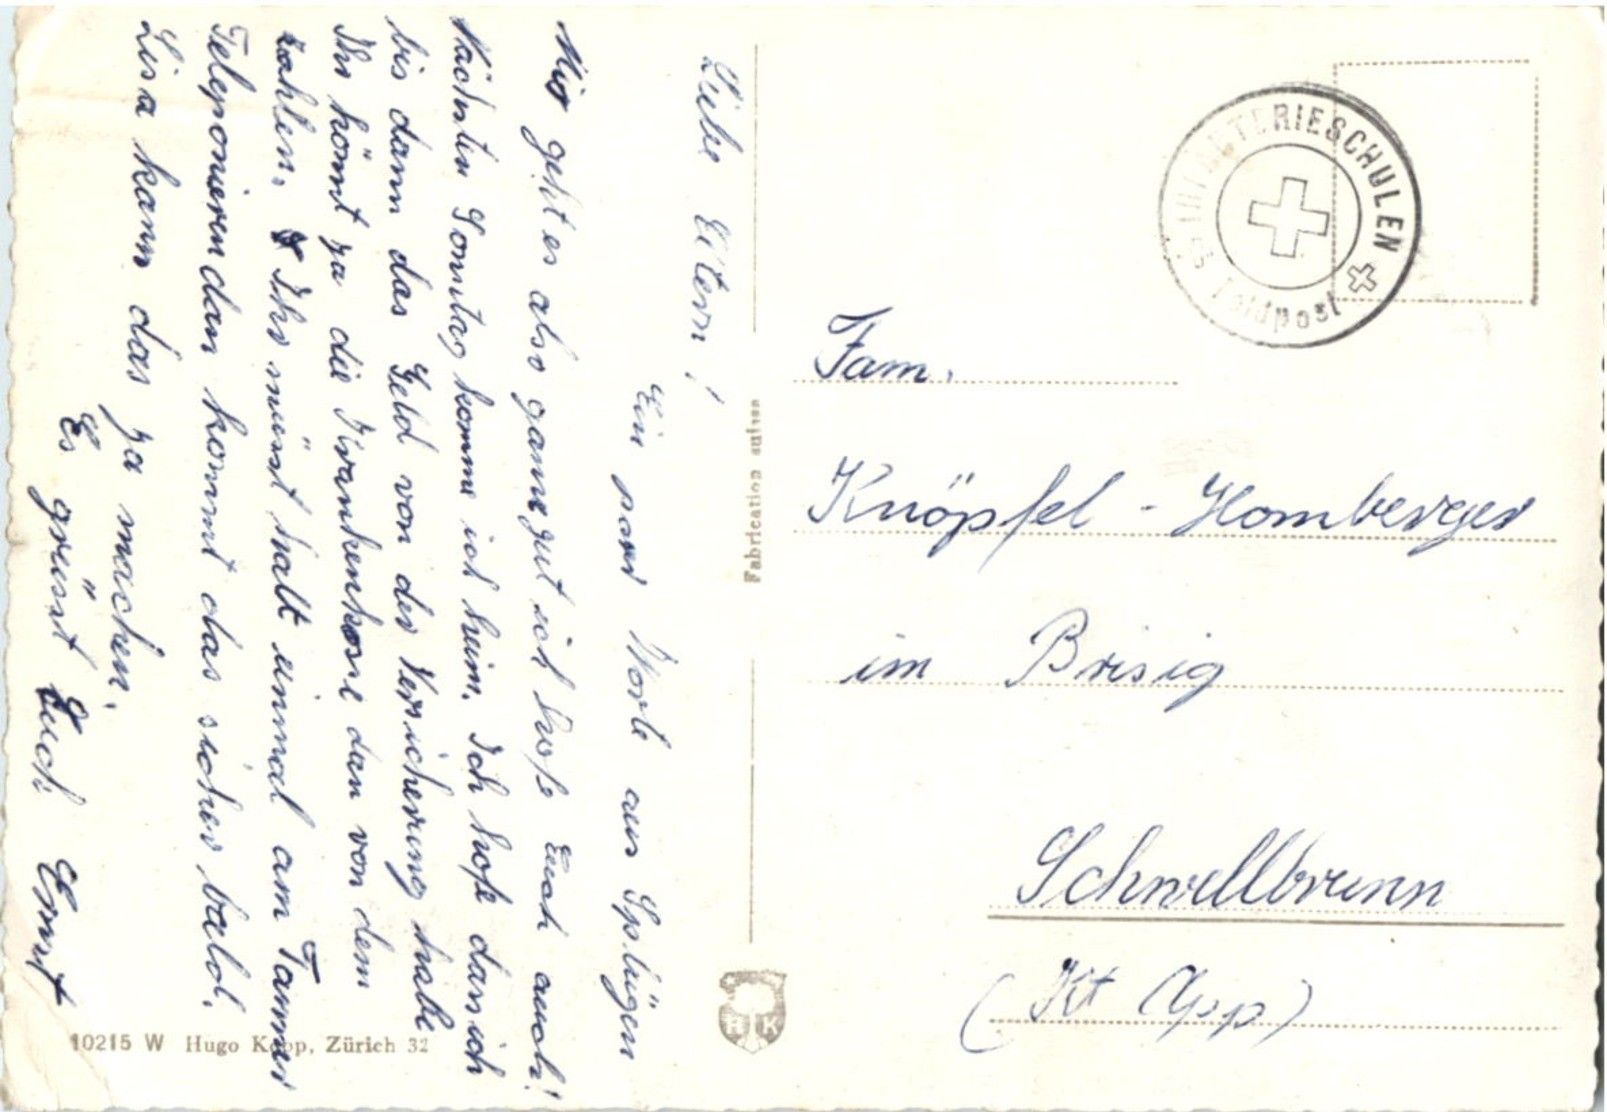 Liebe Eltern!
Ein paar Worte aus Splügen
Mir geht es also ganz gut ich hofe Euch auch!
Nächsten Sonntag komme ich heim. Ich hofe das ich
bis dann das Geld von der Versicherung habe
Ihr könnt ja die Krankenkasse dan von dem
zahlen. Ihr müsst halt einmal am Tanner
Teleponieren dan kommt das sicher bald.
Lisa kann das ja machen.
Es grüsst Euch Ernst
10215 W Hugo Kopp, Zürich 32
Fabrication suisse
HK
INFANTERIESCHULEN
Feldpost
Fam.
Knöpfel - Homberger
im Brisig
Schwellbrunn
(Kt App)